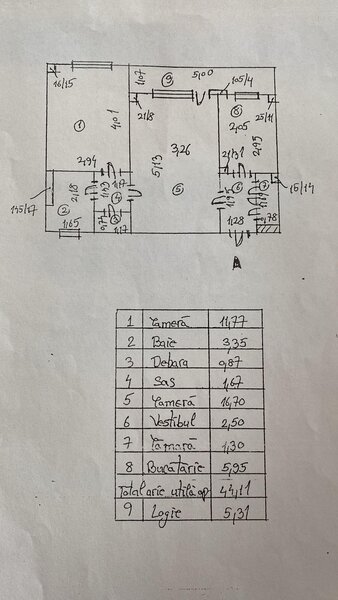 16/15
1,07
9
5,00
105/4
1
4,01
21/8
8
2,05
25/11
3,26
2,95
5,13
21/31
2,94
2,18
1,17
6
7
15/14
145/17
2
4
5
1,65
3
1,17
1,28
,78
A
1 Cameră 11,77
2 Baie 3,35
3 Debara 0,87
4 Sas 1,67
5 Cameră 16,70
6 Vestibul 2,50
7 Cămară 1,30
8 Bucătărie 5,95
Total arie utilă ap 44,11
9 Logie 5,31